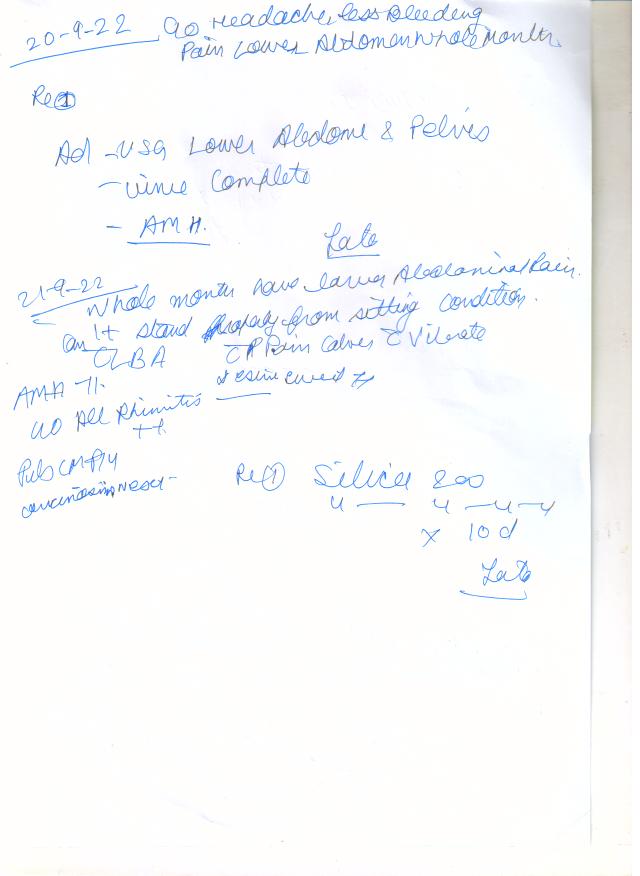 20-9-22 C/o Headache, less Bleeding
Pain Lower Abdomen Whole Month
Re ①
Ad - USG Lower Abdome & Pelvis
- Urine Complete
- AMH.
Lata
21-9-22
Whole month have lower Abdominal Pain.
can't stand properly from sitting condition.
CLBA Pain calves c Vibrate
AMH 71.
C/O All Rhinitis
++
Puls CM P/4
Re ① Silica 200
4 — 4 — 4 — 4
x 10 d
Lata